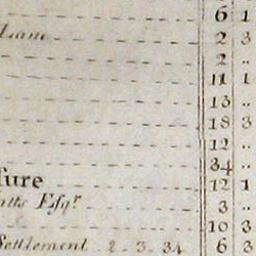 6 1
Lane 2 3
2 ..
11 1
13 ..
18 3
12 ..
34 ..
sure 12 1
Esqr 3 ..
10 3
Settlement 2 - 3 - 34 6 3